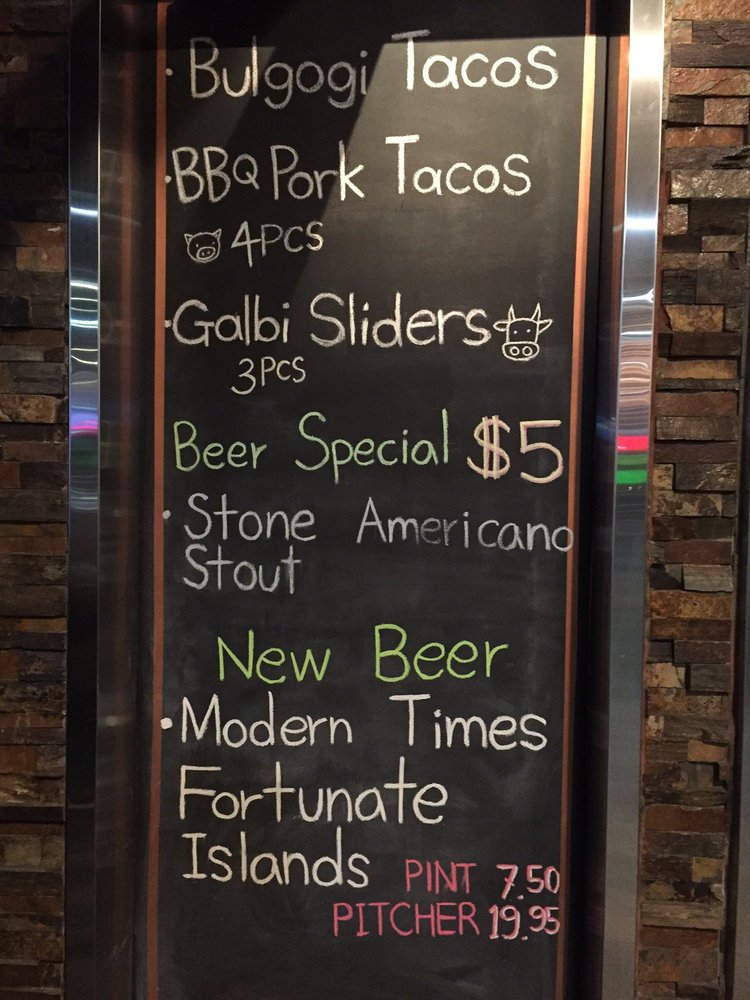 · Bulgogi Tacos
· BBQ Pork Tacos
4PCS
· Galbi Sliders
3PCS
Beer Special $5
· Stone Americano
Stout
New Beer
· Modern Times
Fortunate
Islands
PINT 7.50
PITCHER 19.95